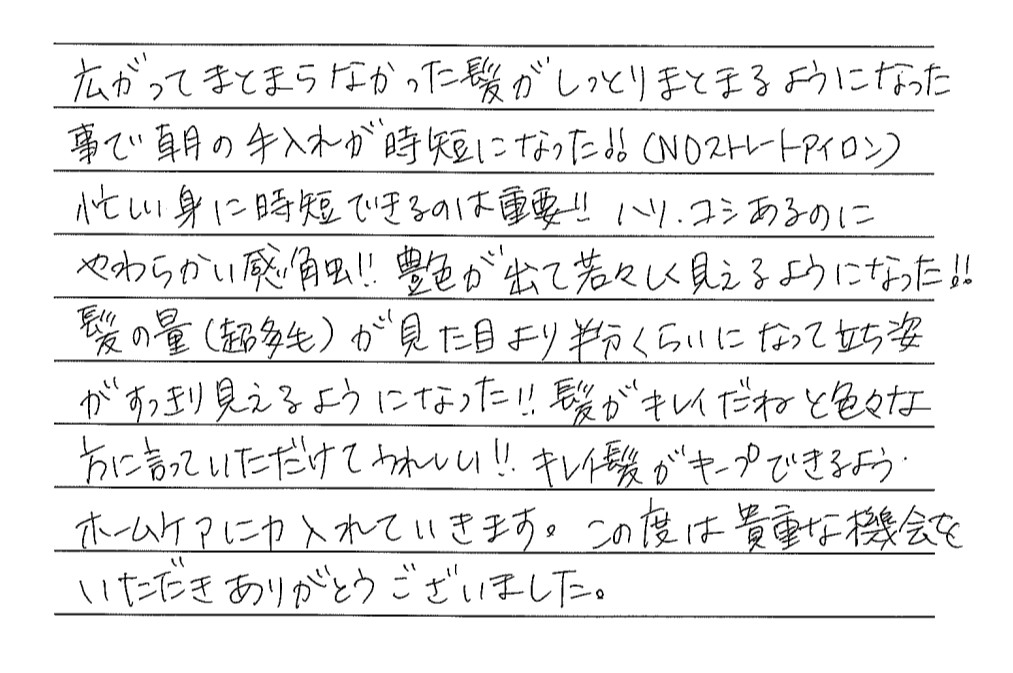 広がってまとまらなかった髪がしっとりまとまるようになった
事で朝の手入れが時短になった!!（NOストレートアイロン）
忙しい身に時短できるのは重要!! ハリ、コシあるのに
やわらかい感触!! 艶色が出て若々しく見えるようになった!!
髪の量（超多毛）が見た目より半分くらいになって立ち姿
がすっきり見えるようになった!! 髪がキレイだねと色々な
方に言っていただけてうれしい!! キレイ髪がキープできるよう
ホームケアに力入れていきます。この度は貴重な機会を
いただきありがとうございました。